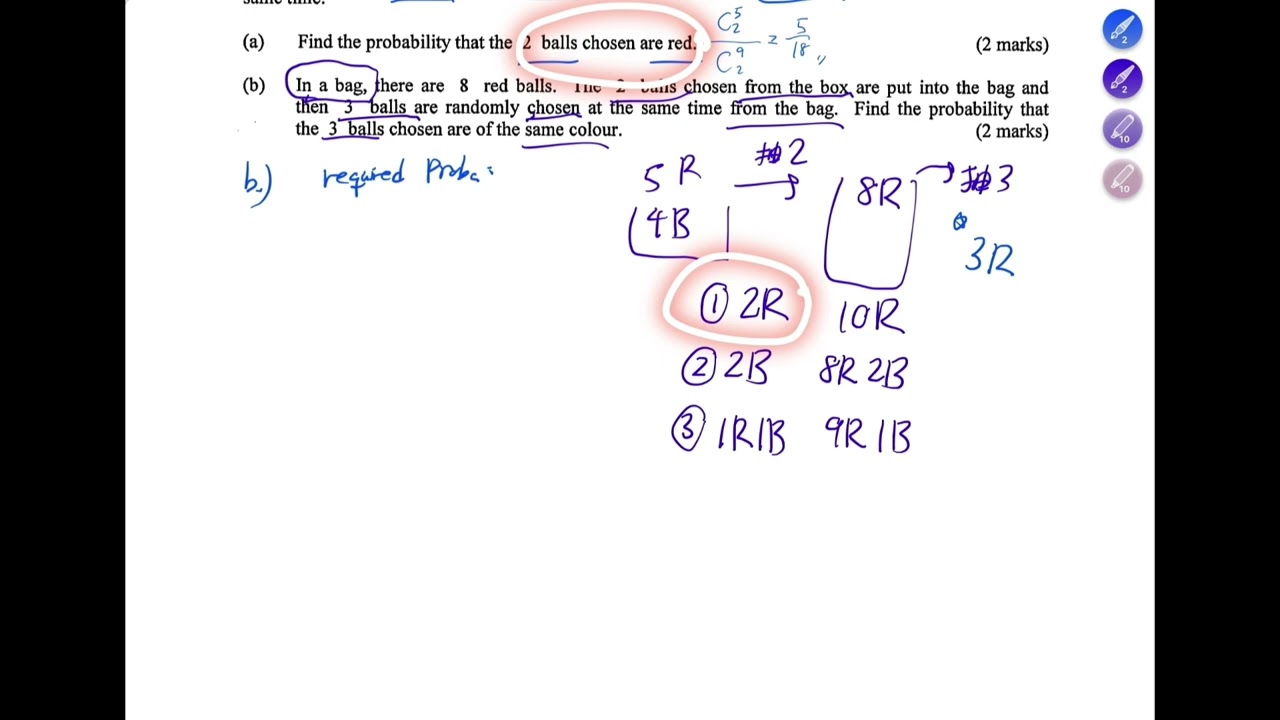 same time.
(a) Find the probability that the 2 balls chosen are red. C⁵₂ / C⁹₂ = 5/18 ,, (2 marks)
(b) In a bag, there are 8 red balls. The 2 balls chosen from the box are put into the bag and
then 3 balls are randomly chosen at the same time from the bag. Find the probability that
the 3 balls chosen are of the same colour. (2 marks)
b.) required Prob. =
5R 抽2 8R 抽3
4B 3R
① 2R 10R
② 2B 8R 2B
③ 1R1B 9R 1B
2
2
10
10